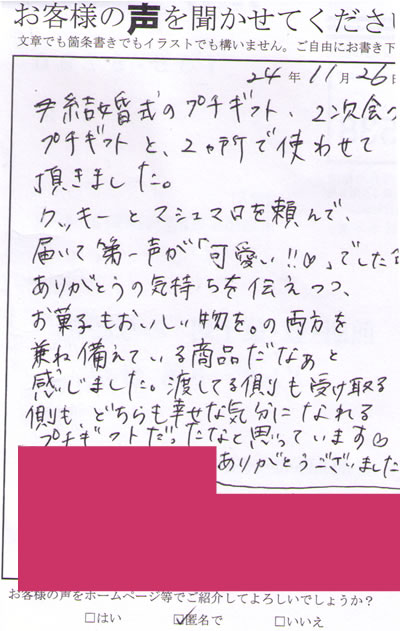 お客様の声を聞かせてくださ
文章でも箇条書きでもイラストでも構いません。ご自由にお書き下
24年11月26日
結婚式のプチギフト、2次会の
プチギフトと、2ヶ所で使わせて
頂きました。
クッキーとマシュマロを頼んで、
届いて第一声が「可愛い!!♡」でした
ありがとうの気持ちを伝えつつ、
お菓子もおいしい物を。の両方を
兼ね備えている商品だなぁと
感じました。渡してる側も受け取る
側も、どちらも幸せな気分になれる
プチギフトだったなと思っています♡
ありがとうございました
お客様の声をホームページ等でご紹介してよろしいでしょうか?
□はい ☑匿名で □いいえ